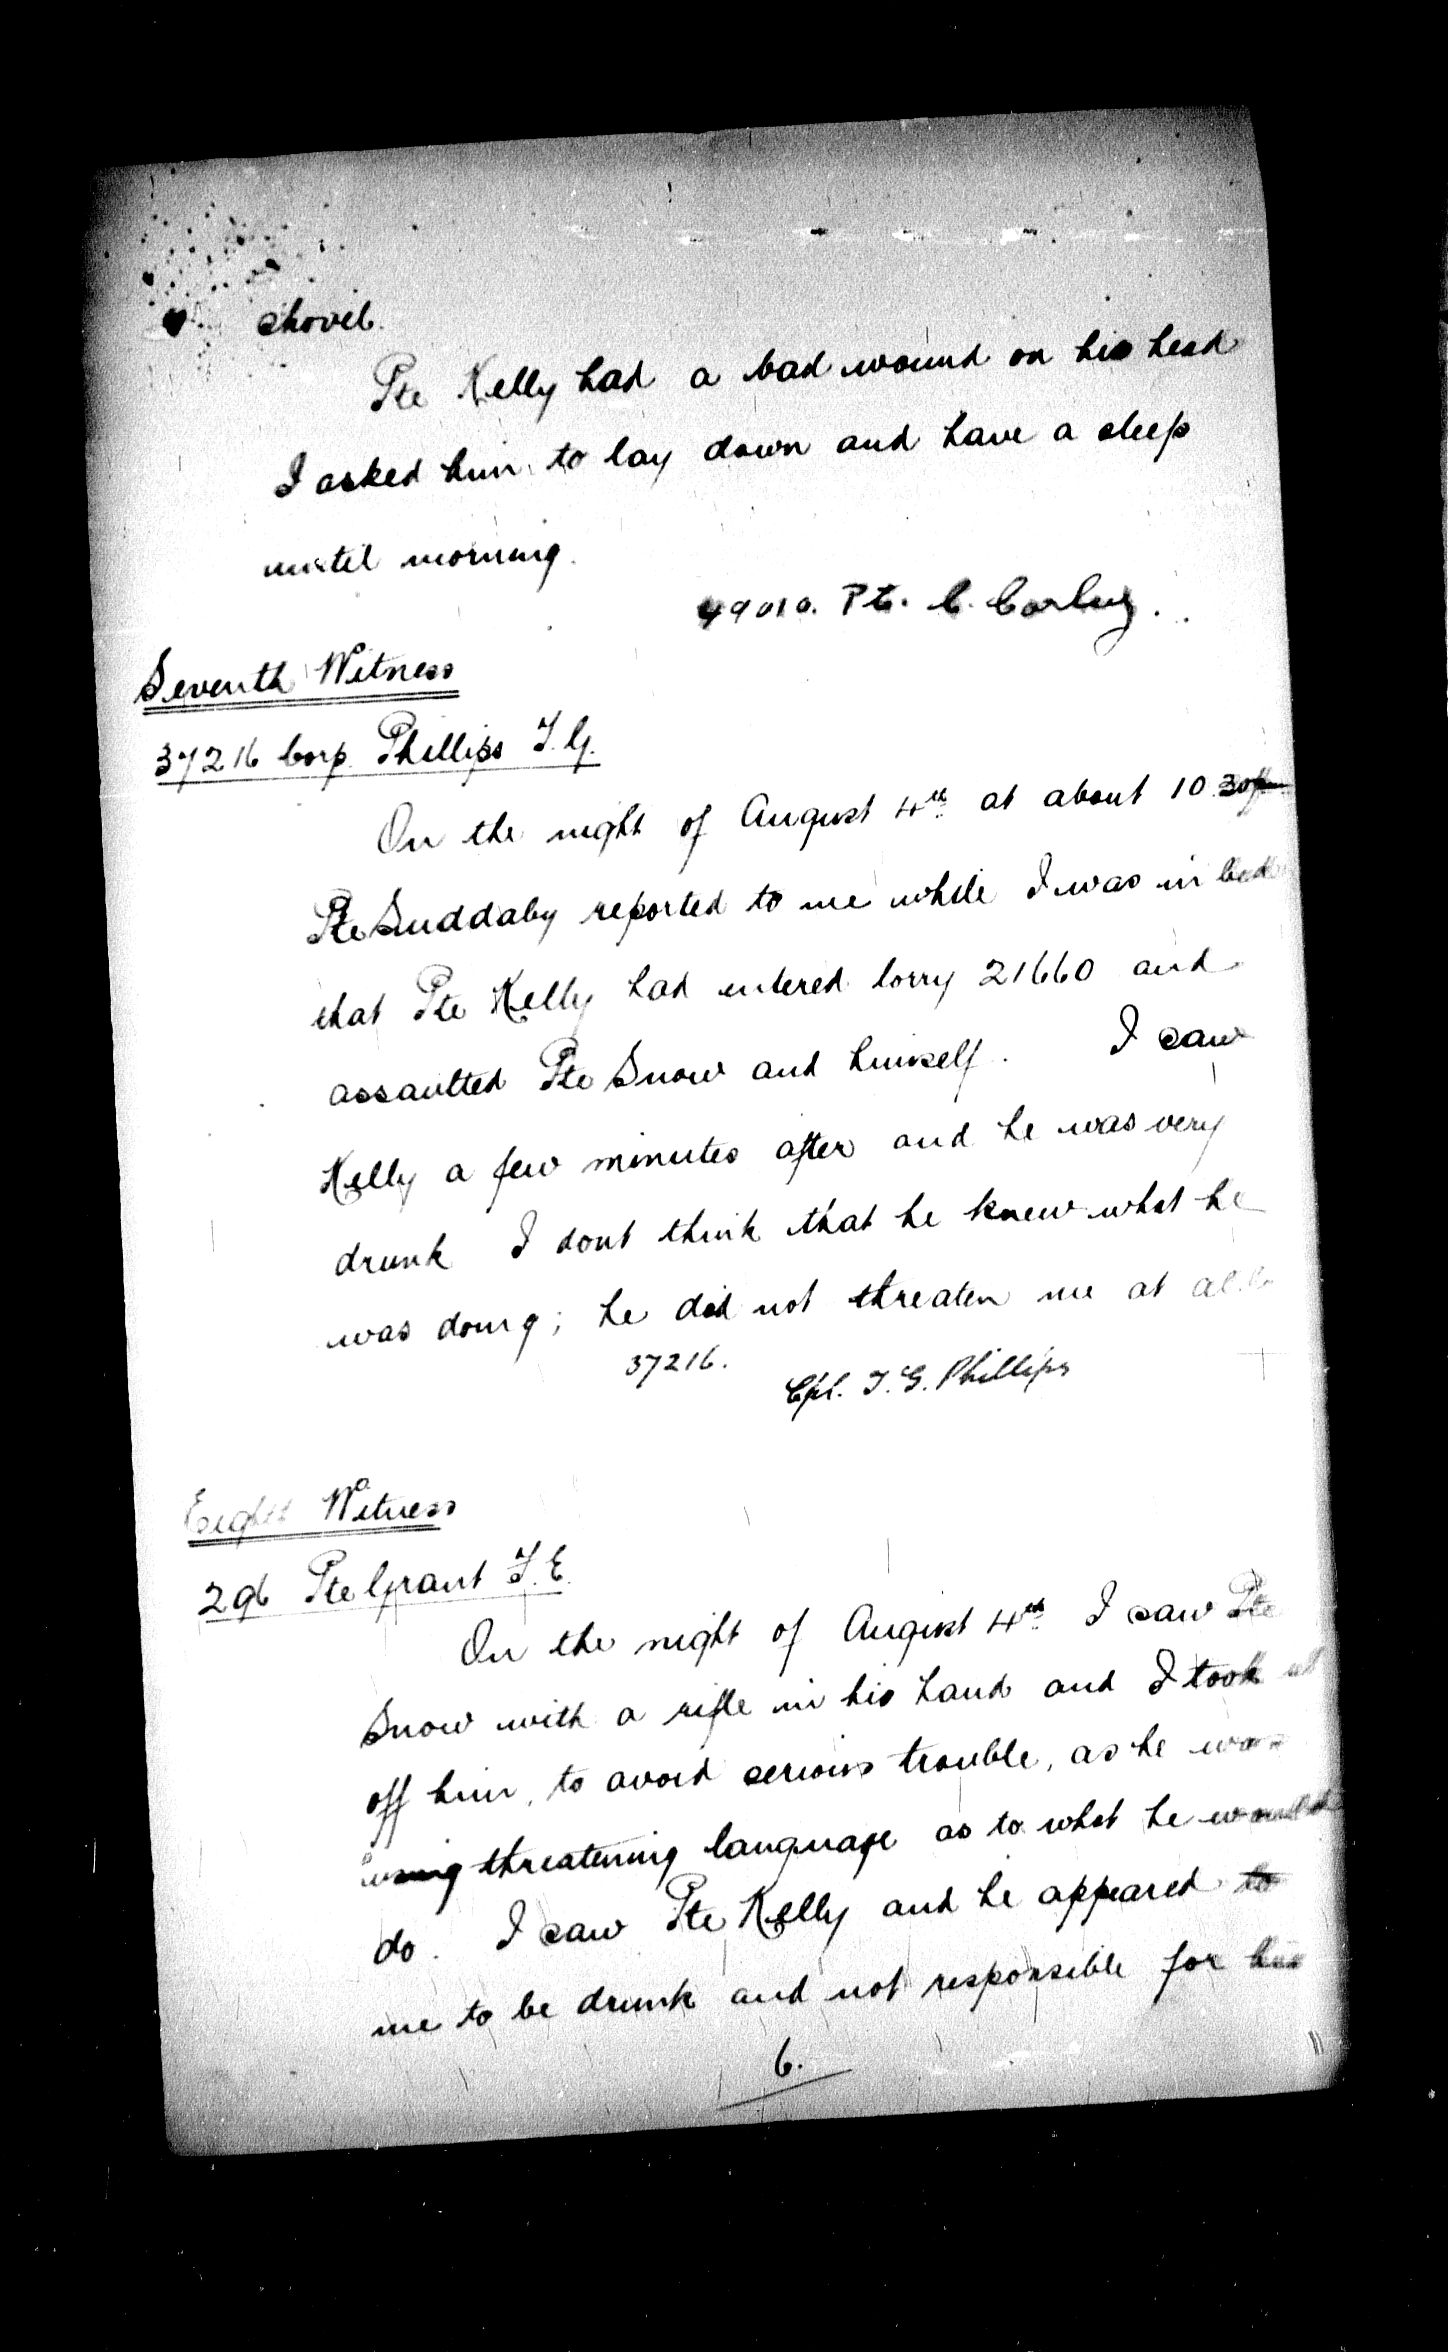 shovel.
Pte Kelly had a bad wound on his head
I asked him to lay down and have a sleep
until morning.
Pte. C.
Seventh Witness
37216 Corp. Phillips T. G.
On the night of August 4th at about 10.30pm
Pte Suddaby reported to me while I was in bed
that Pte Kelly had entered lorry 21660 and
assaulted Pte Snow and himself. I saw
Kelly a few minutes after and he was very
drunk I dont think that he knew what he
was doing; he did not threaten me at all
37216.
Cpl. T. G. Phillips
Eight Witness
296 Pte Grant T. E.
On the night of August 4th I saw Pte
Snow with a rifle in his hand and I took it
off him, to avoid serious trouble, as he was
using threatening language as to what he would
do. I saw Pte Kelly and he appeared to
me to be drunk and not responsible for his
6.